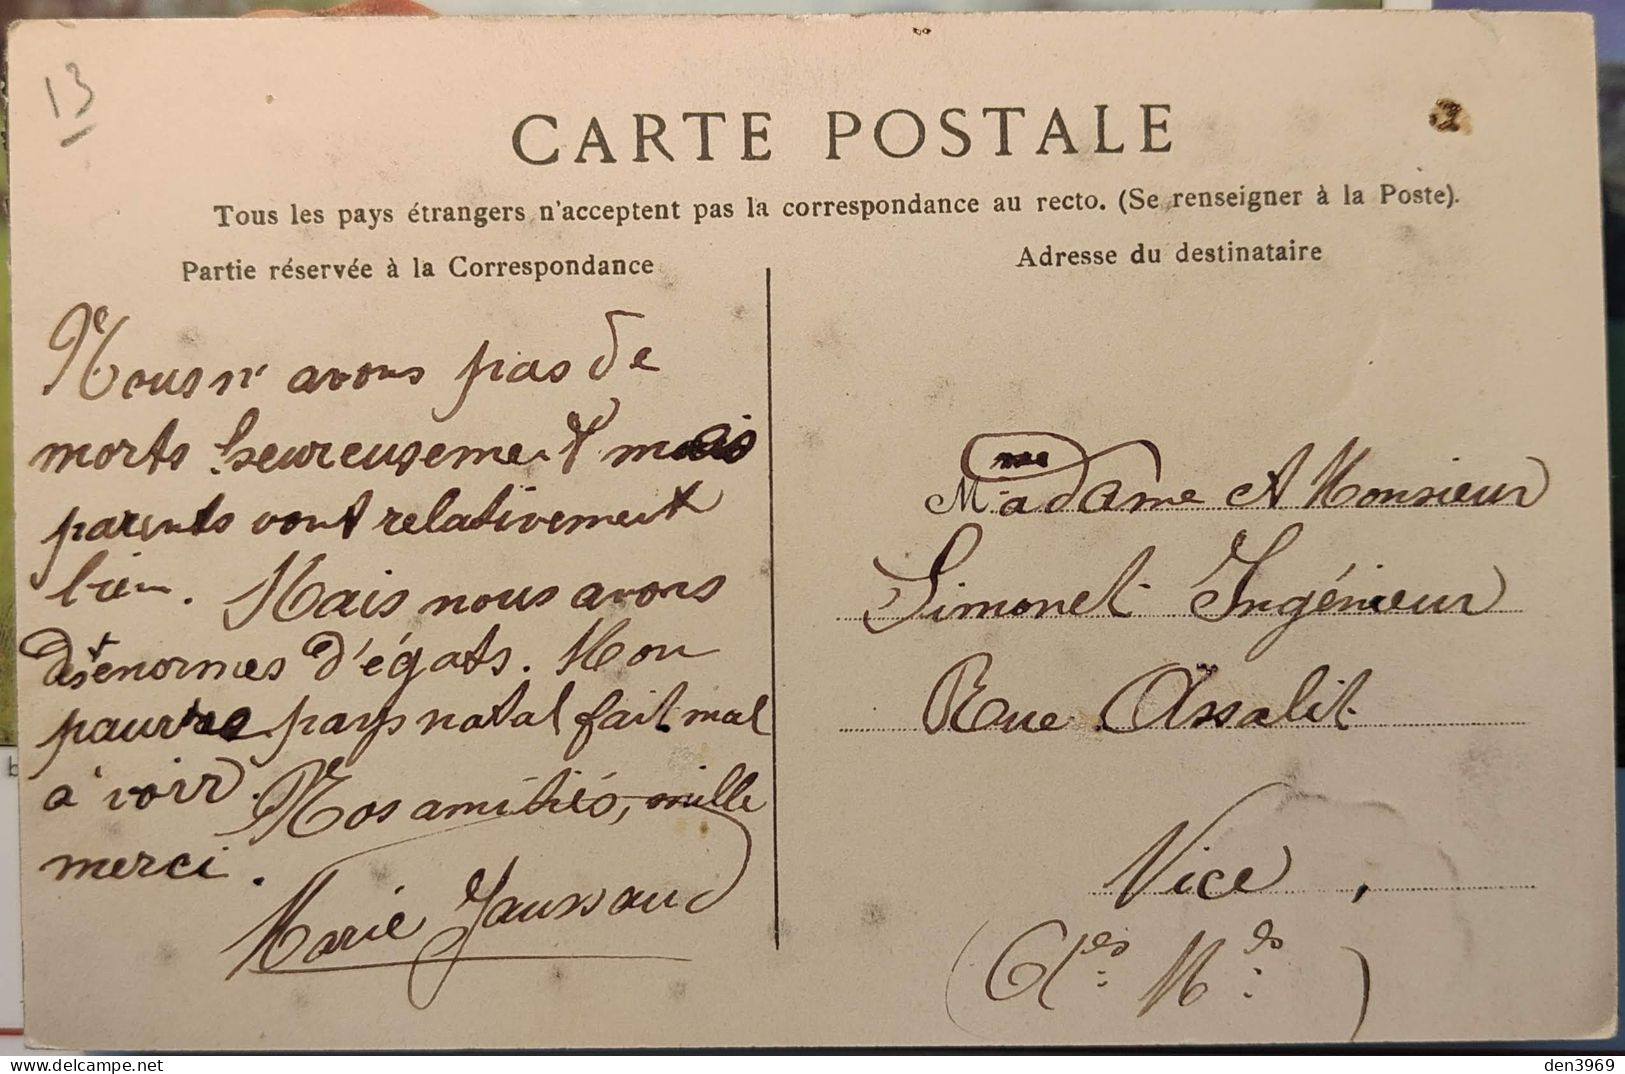 13
CARTE POSTALE
Tous les pays étrangers n'acceptent pas la correspondance au recto. (Se renseigner à la Poste).
Partie réservée à la Correspondance
Nous n'avons pas de
morts heureusement mais
parents vont relativement
bien. Mais nous avons
des enormes d'égats. Mon
pauvre pays natal fait mal
à voir. Nos amitiés, mille
merci.
Marie Jaussaud
Adresse du destinataire
Madame et Monsieur
Simonet Ingénieur
Rue Assalit
Nice,
(Aes Mes)
den3969